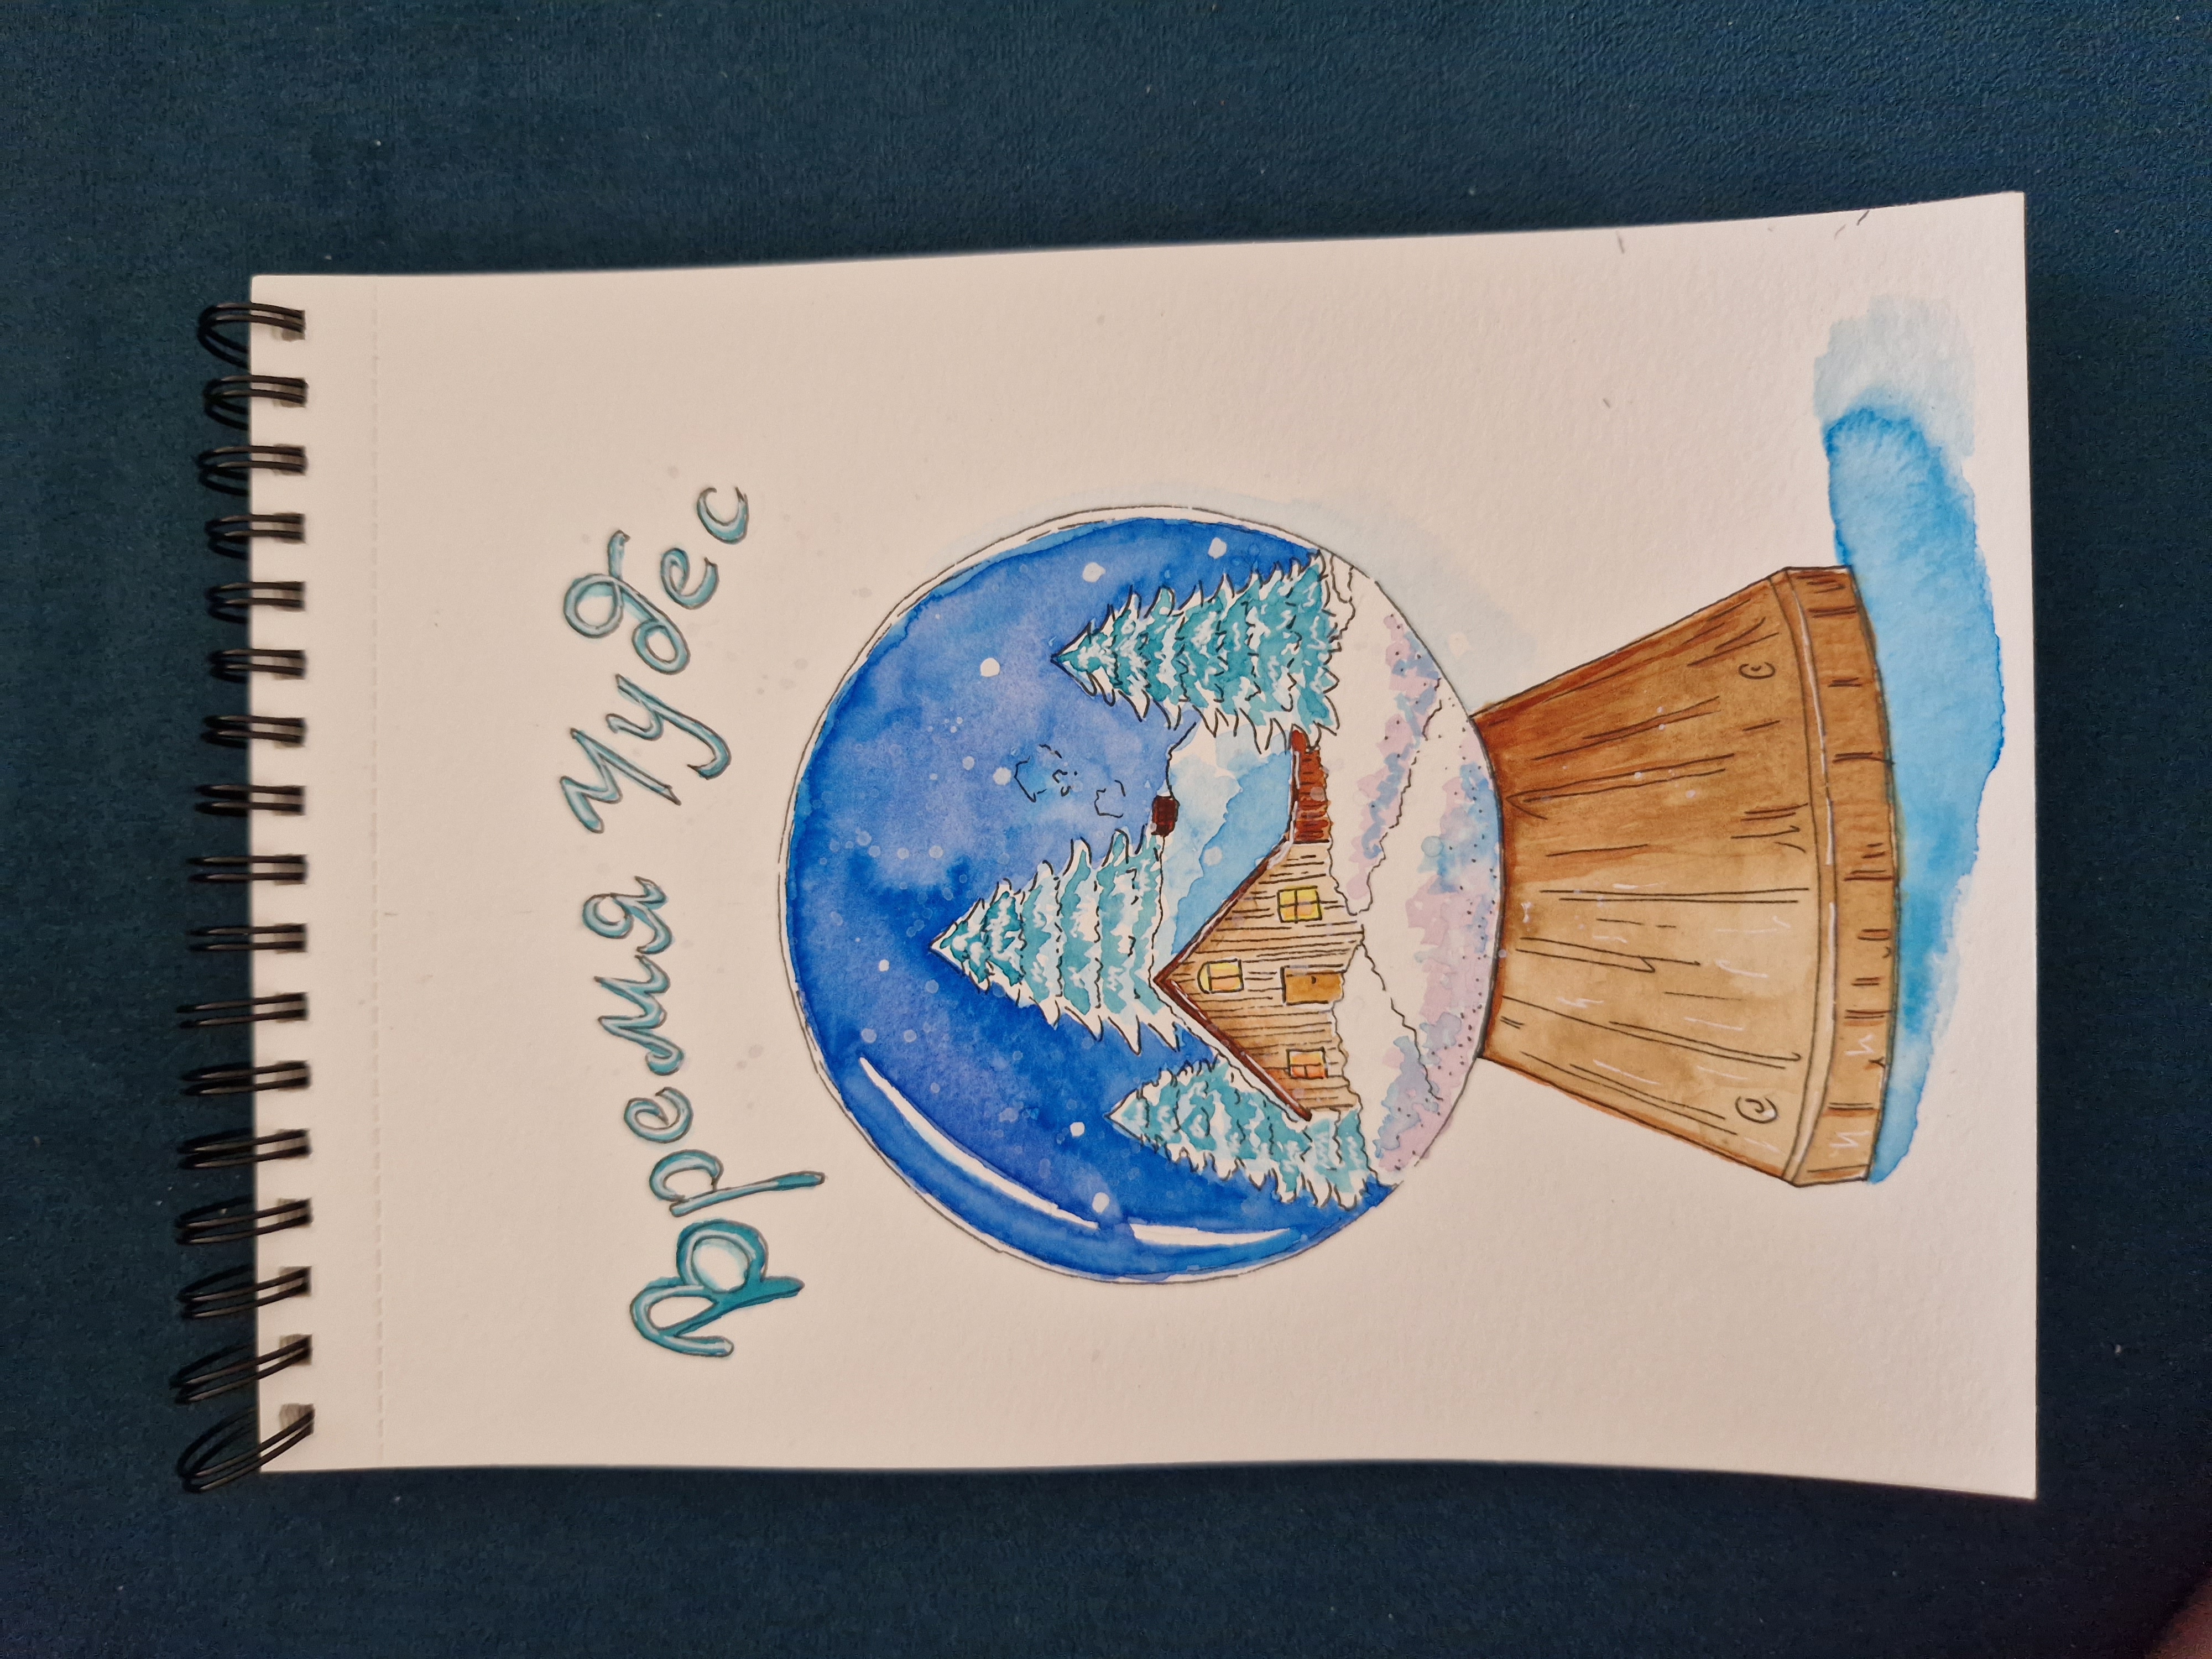 Время Чудес